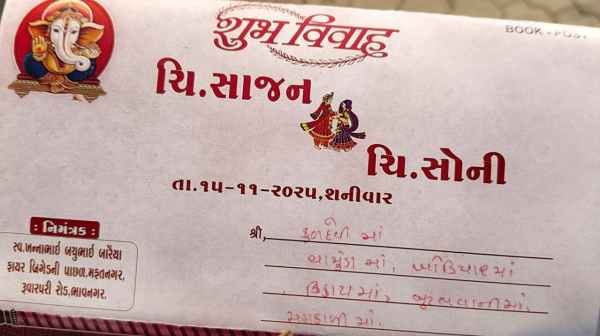 શુભ વિવાહ
BOOK - POST
ચિ.સાજન
ચિ.સોની
તા.૧૫-૧૧-૨૦૨૫,શનીવાર
: નિમંત્રક :
સ્વ.ખન્નાભાઈ બચુભાઈ બારૈયા
ફાયર બ્રિગેડની પાછળ,મફતનગર,
રૂવાપરી રોડ,ભાવનગર.
શ્રી, કુળદેવી માં
ચામુંડા માં, ખોડિયાર માં
માં, ભવાની માં,
માં.